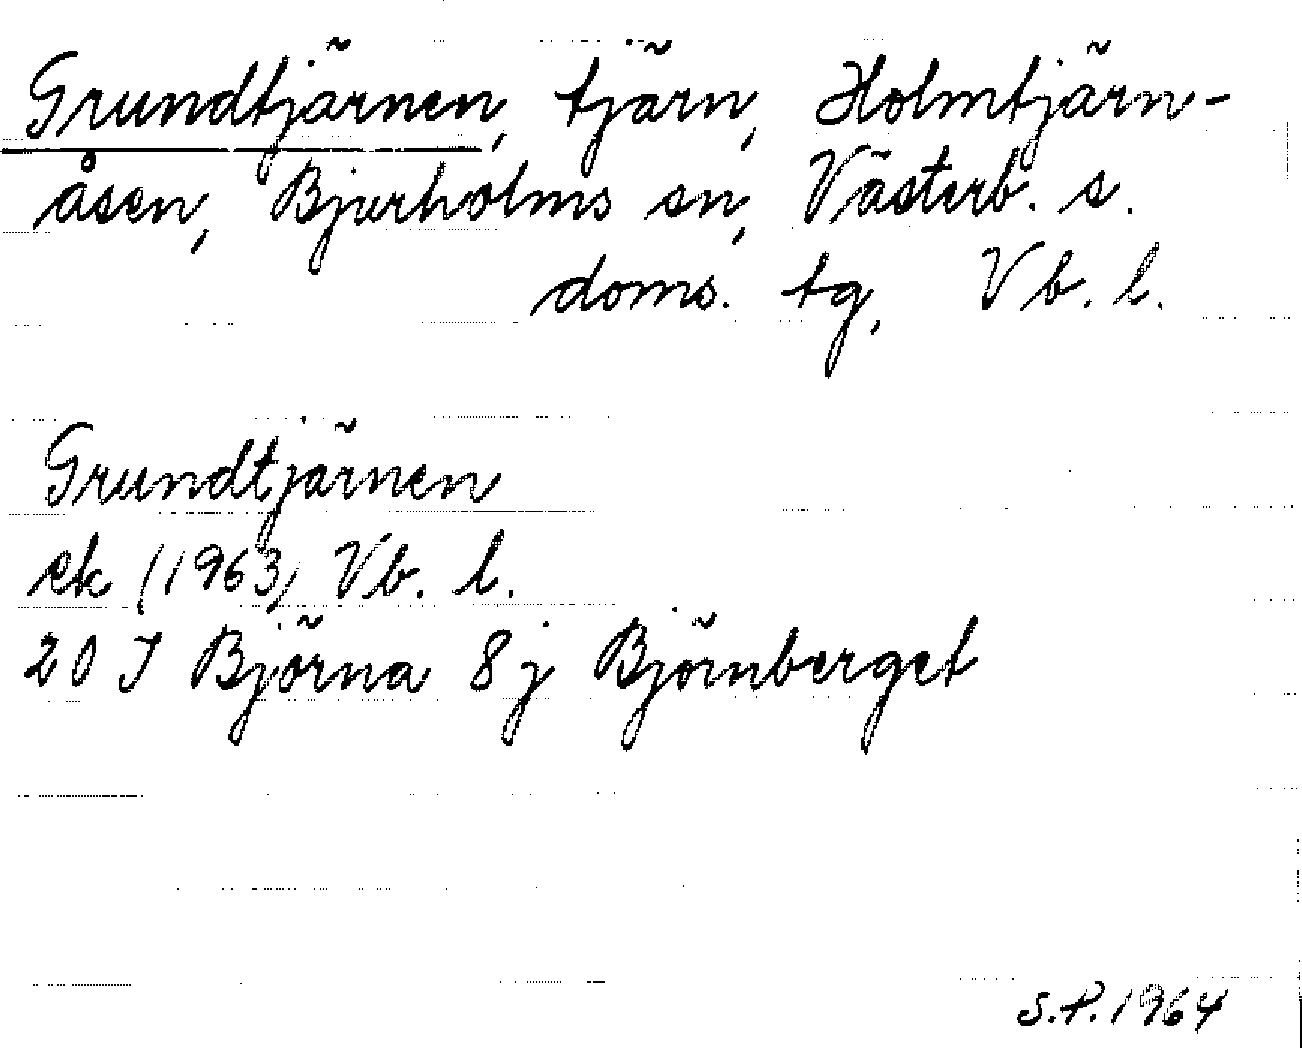 Grundtjärnen, tjärn, Holmtjärn-
åsen, Bjurholms sn, Västerb. s.
doms. tg, Vb. l.
Grundtjärnen
ek (1963) Vb. l.
20 I Björna 8j Björnberget
S.P. 1964